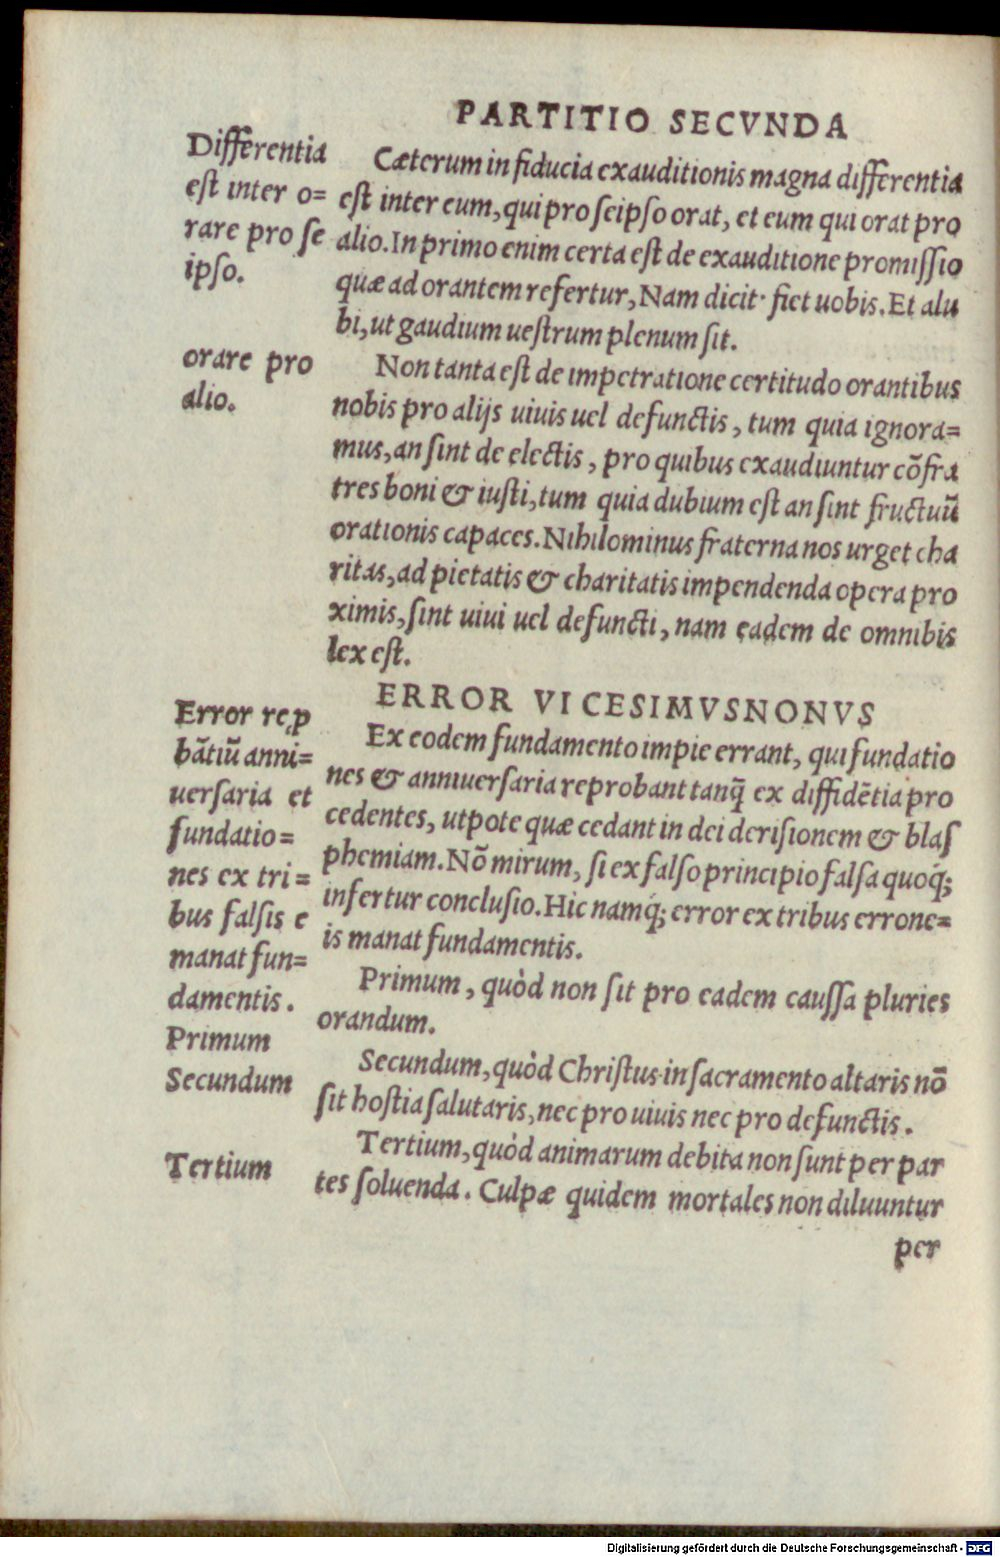 PARTITIO SECVNDA
Differentia
est inter o=
rare pro se
ipso.
Cæterum in fiducia exauditionis magna differentia
est inter eum, qui pro seipso orat, et eum qui orat pro
alio. In primo enim certa est de exauditione promissio
quæ ad orantem refertur, Nam dicit· fiet uobis. Et alu
bi, ut gaudium uestrum plenum sit.
orare pro
alio.
Non tanta est de impetratione certitudo orantibus
nobis pro alijs uiuis uel defunctis, tum quia ignora=
mus, an sint de electis, pro quibus exaudiuntur cõfra
tres boni & iusti, tum quia dubium est an sint fructuũ
orationis capaces. Nihilominus fraterna nos urget cha
ritas, ad pietatis & charitatis impendenda opera pro
ximis, sint uiui uel defuncti, nam eadem de omnibis
lex est.
ERROR VICESIMVSNONVS
Error rep̱
bãtiũ anni=
uersaria et
fundatio=
nes ex tri=
bus falsis e
manat fun=
damentis.
Ex eodem fundamento impie errant, qui fundatio
nes & anniuersaria reprobant tanq̃ ex diffidẽtia pro
cedentes, utpote quæ cedant in dei derisionem & blas
phemiam. Nõ mirum, si ex falso principio falsa quoq́;
infertur conclusio. Hic namq́; error ex tribus errone=
is manat fundamentis.
Primum
Primum, quòd non sit pro eadem caussa pluries
orandum.
Secundum
Secundum, quòd Christus in sacramento altaris nõ
sit hostia salutaris, nec pro uiuis nec pro defunctis.
Tertium
Tertium, quòd animarum debita non sunt per par
tes soluenda. Culpæ quidem mortales non diluuntur
per
Digitalisierung gefördert durch die Deutsche Forschungsgemeinschaft - DFG